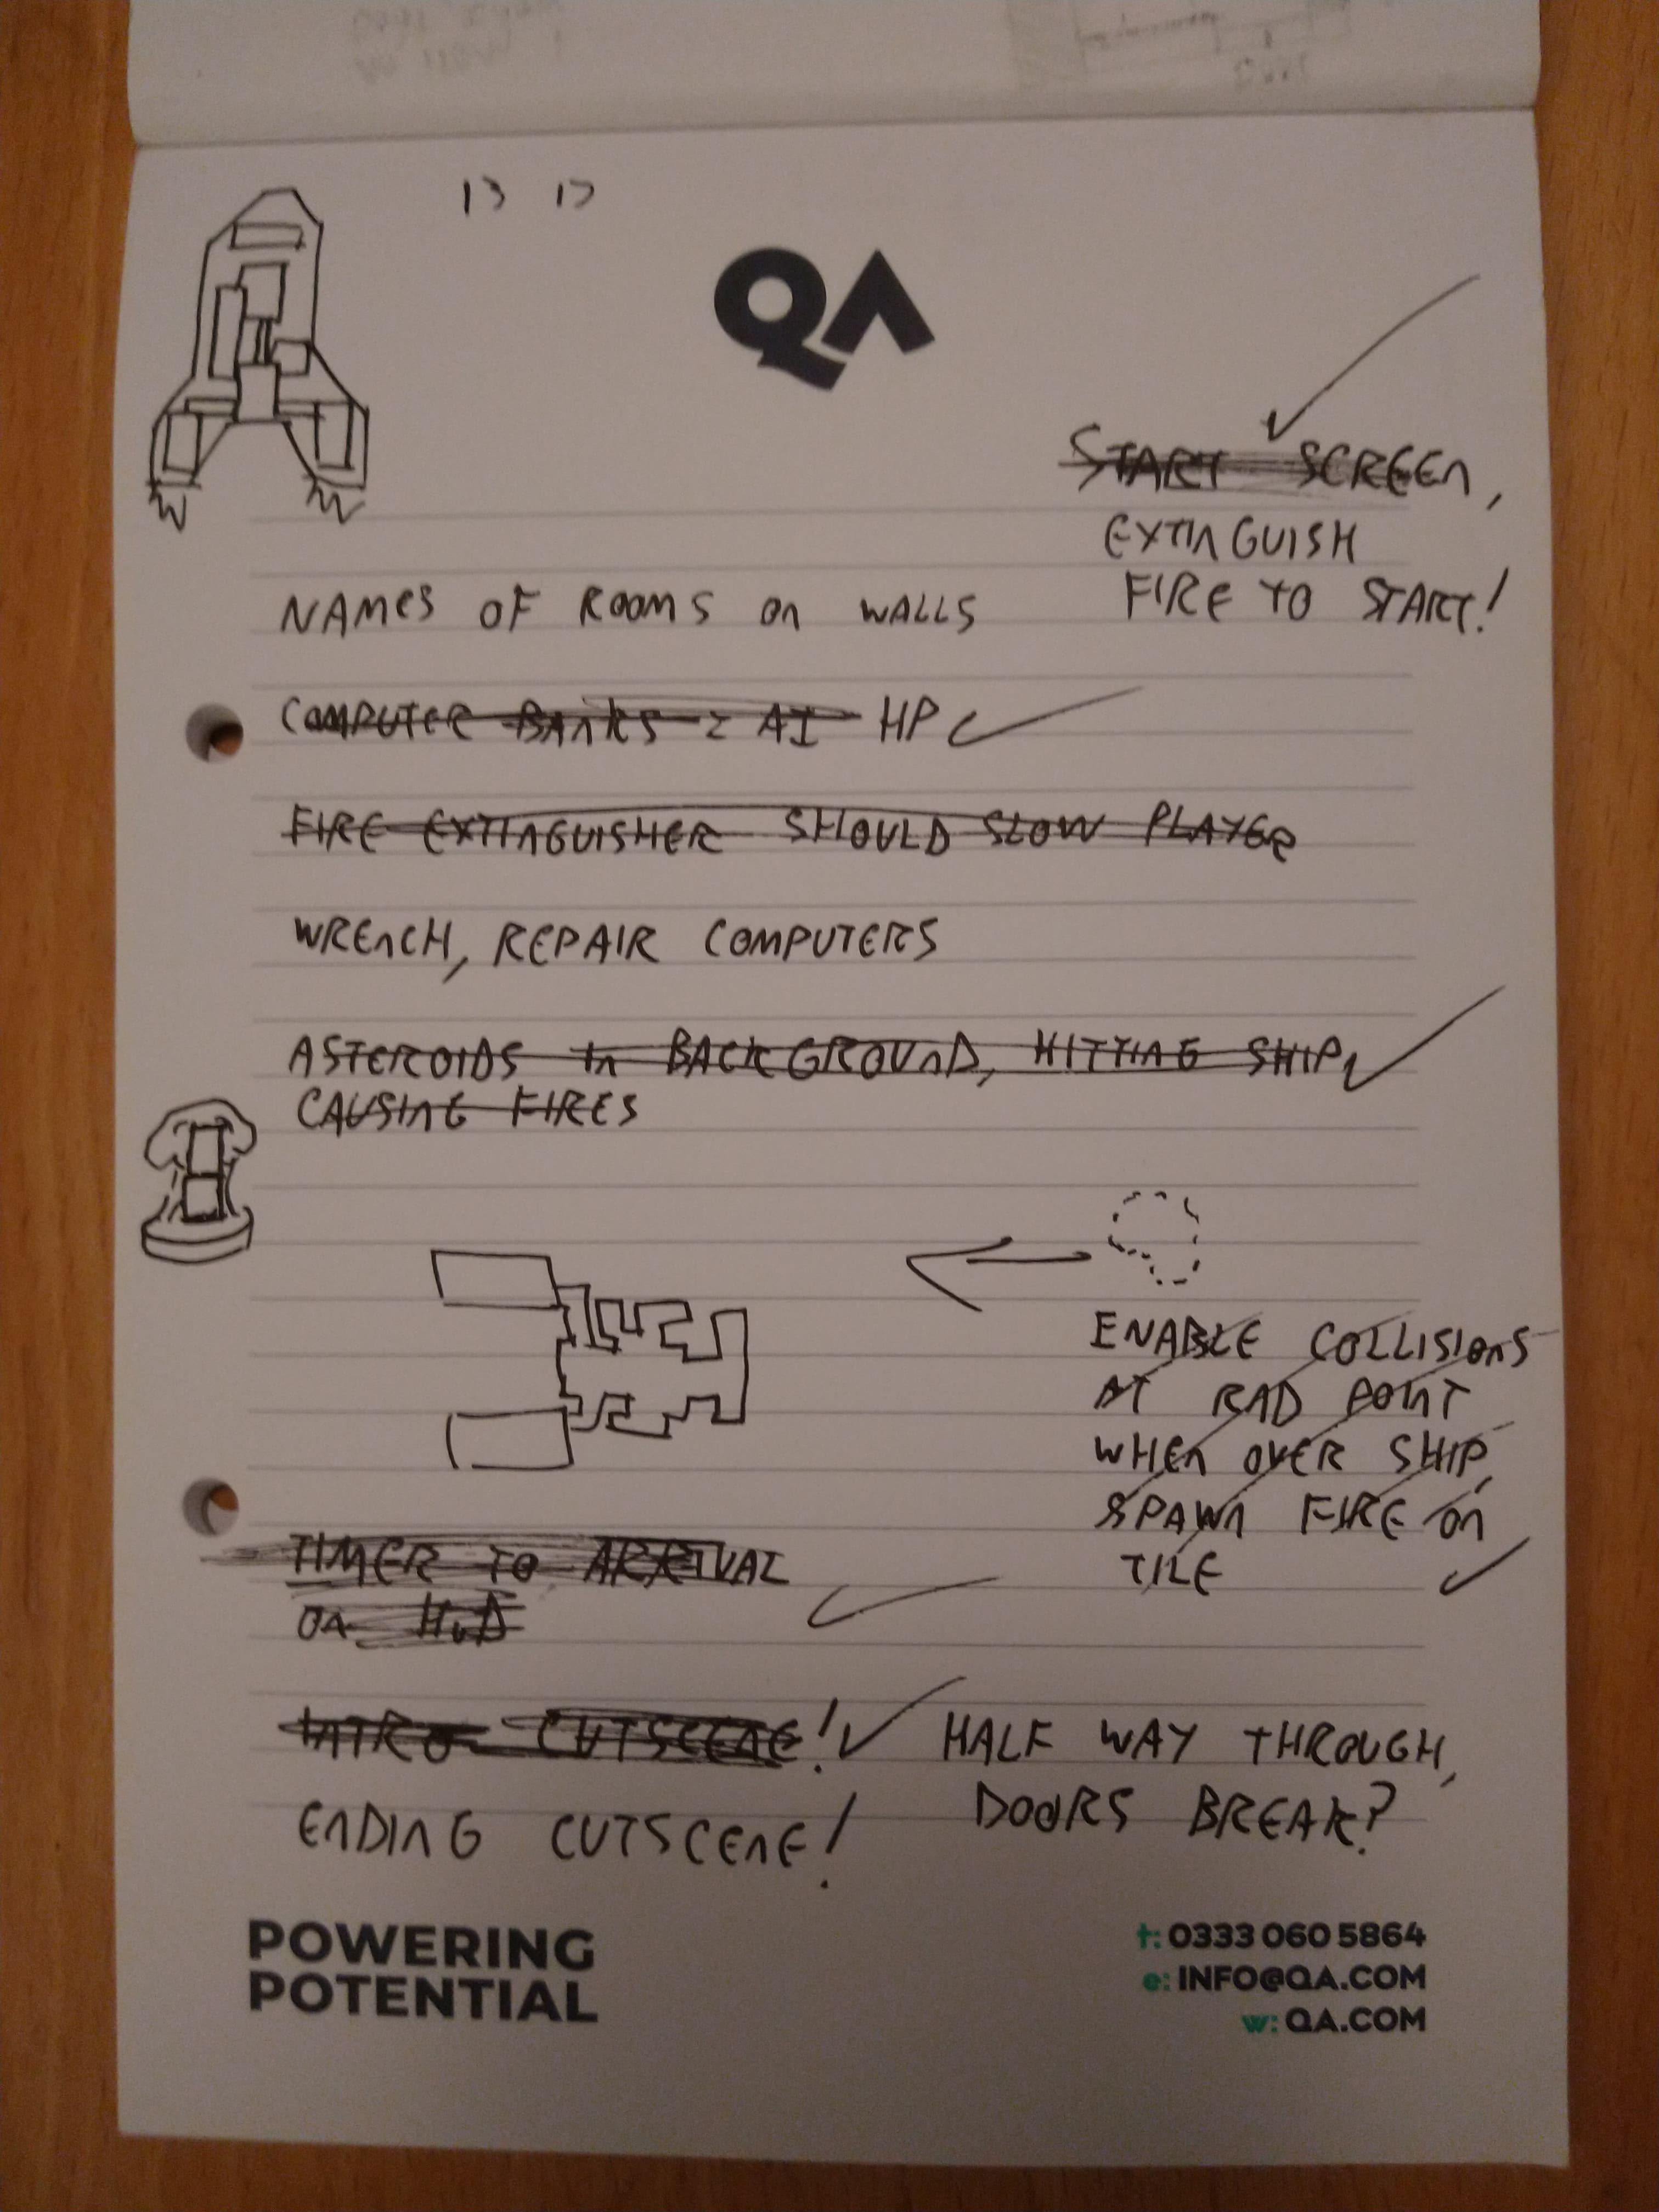 13
QA
START SCREEN,
EXTINGUISH
FIRE TO START!
NAMES OF ROOMS ON WALLS
COMPUTER BANKS = AI HP
FIRE EXTINGUISHER SHOULD SLOW PLAYER
WRENCH, REPAIR COMPUTERS
ASTEROIDS IN BACKGROUND, HITTING SHIP
CAUSING FIRES
ENABLE COLLISIONS
AT RAD POINT
WHEN OVER SHIP,
SPAWN FIRE ON
TILE
TIMER TO ARRIVAL
ON HUD
INTRO CUTSCENE!
HALF WAY THROUGH,
DOORS BREAK?
ENDING CUTSCENE!
POWERING
POTENTIAL
t: 0333 060 5864
e: INFO@QA.COM
w: QA.COM